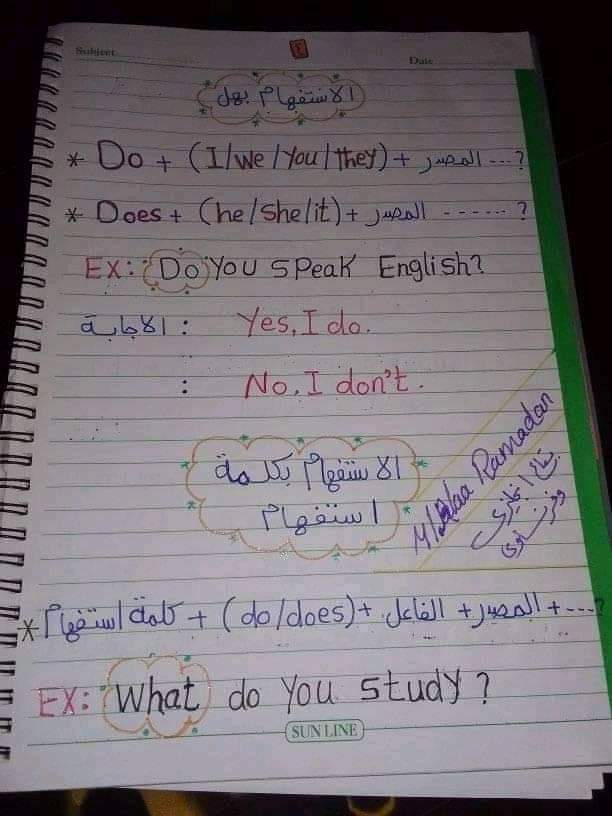 Subject
٤
Date
الاستفهام بهل
* Do + (I/we/you/they) + المصدر ...?
* Does + (he/she/it) + المصدر ------?
EX: Do you speak English?
الاجابة : Yes, I do.
: No, I don't.
الاستفهام بكلمة
استفهام
M/Alaa Ramadan
بتاع انجليزي
وفرنساوى
* كلمة استفهام + (do/does) + الفاعل + المصدر + ...?
EX: What do you study?
SUN LINE